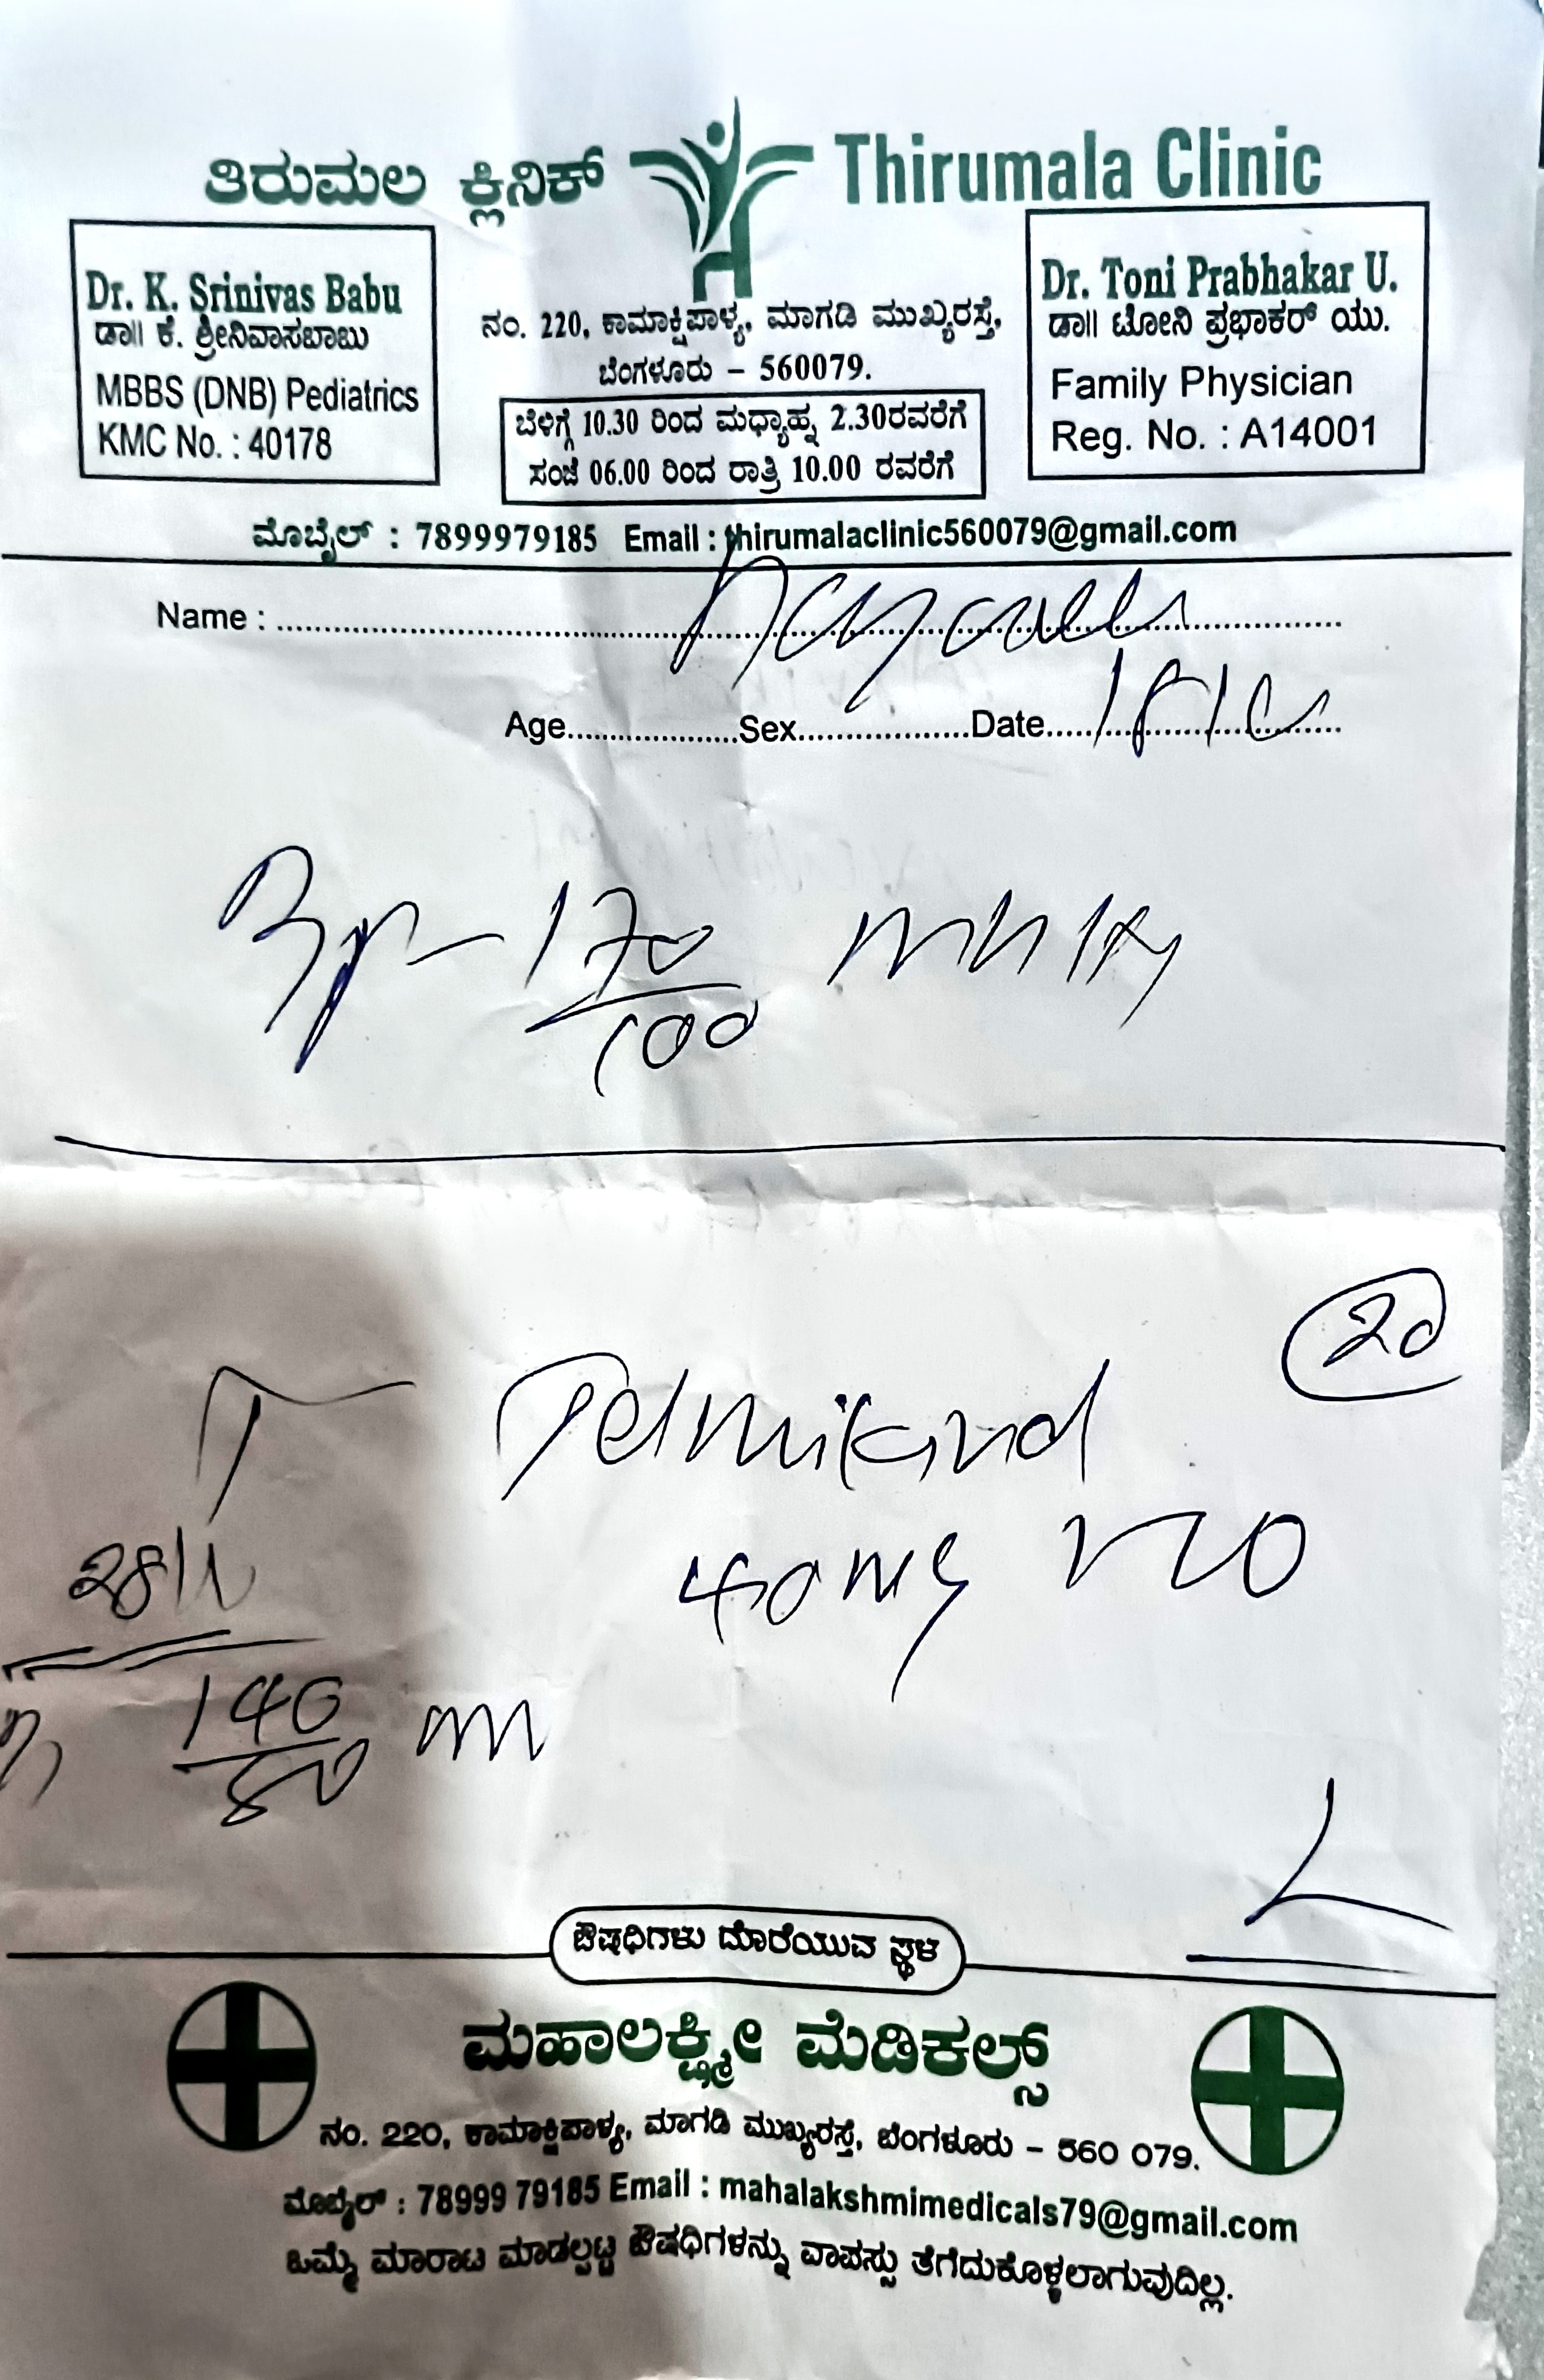 ತಿರುಮಲ ಕ್ಲಿನಿಕ್ Thirumala Clinic
Dr. K. Srinivas Babu
ಡಾ|| ಕೆ. ಶ್ರೀನಿವಾಸಬಾಬು
MBBS (DNB) Pediatrics
KMC No. : 40178
ನಂ. 220, ಕಾಮಾಕ್ಷಿಪಾಳ್ಯ, ಮಾಗಡಿ ಮುಖ್ಯರಸ್ತೆ,
ಬೆಂಗಳೂರು – 560079.
ಬೆಳಿಗ್ಗೆ 10.30 ರಿಂದ ಮಧ್ಯಾಹ್ನ 2.30ರವರೆಗೆ
ಸಂಜೆ 06.00 ರಿಂದ ರಾತ್ರಿ 10.00 ರವರೆಗೆ
Dr. Toni Prabhakar U.
ಡಾ|| ಟೋನಿ ಪ್ರಭಾಕರ್ ಯು.
Family Physician
Reg. No. : A14001
ಮೊಬೈಲ್ : 7899979185 Email : thirumalaclinic560079@gmail.com
Name :
Age Sex Date
Bp - 170
100
20
T Telmikind
40 mg
140
ಔಷಧಿಗಳು ದೊರೆಯುವ ಸ್ಥಳ
ಮಹಾಲಕ್ಷ್ಮೀ ಮೆಡಿಕಲ್ಸ್
ನಂ. 220, ಕಾಮಾಕ್ಷಿಪಾಳ್ಯ, ಮಾಗಡಿ ಮುಖ್ಯರಸ್ತೆ, ಬೆಂಗಳೂರು – 560 079.
ಮೊಬೈಲ್ : 78999 79185 Email : mahalakshmimedicals79@gmail.com
ಒಮ್ಮೆ ಮಾರಾಟ ಮಾಡಲ್ಪಟ್ಟ ಔಷಧಿಗಳನ್ನು ವಾಪಸ್ಸು ತೆಗೆದುಕೊಳ್ಳಲಾಗುವುದಿಲ್ಲ.